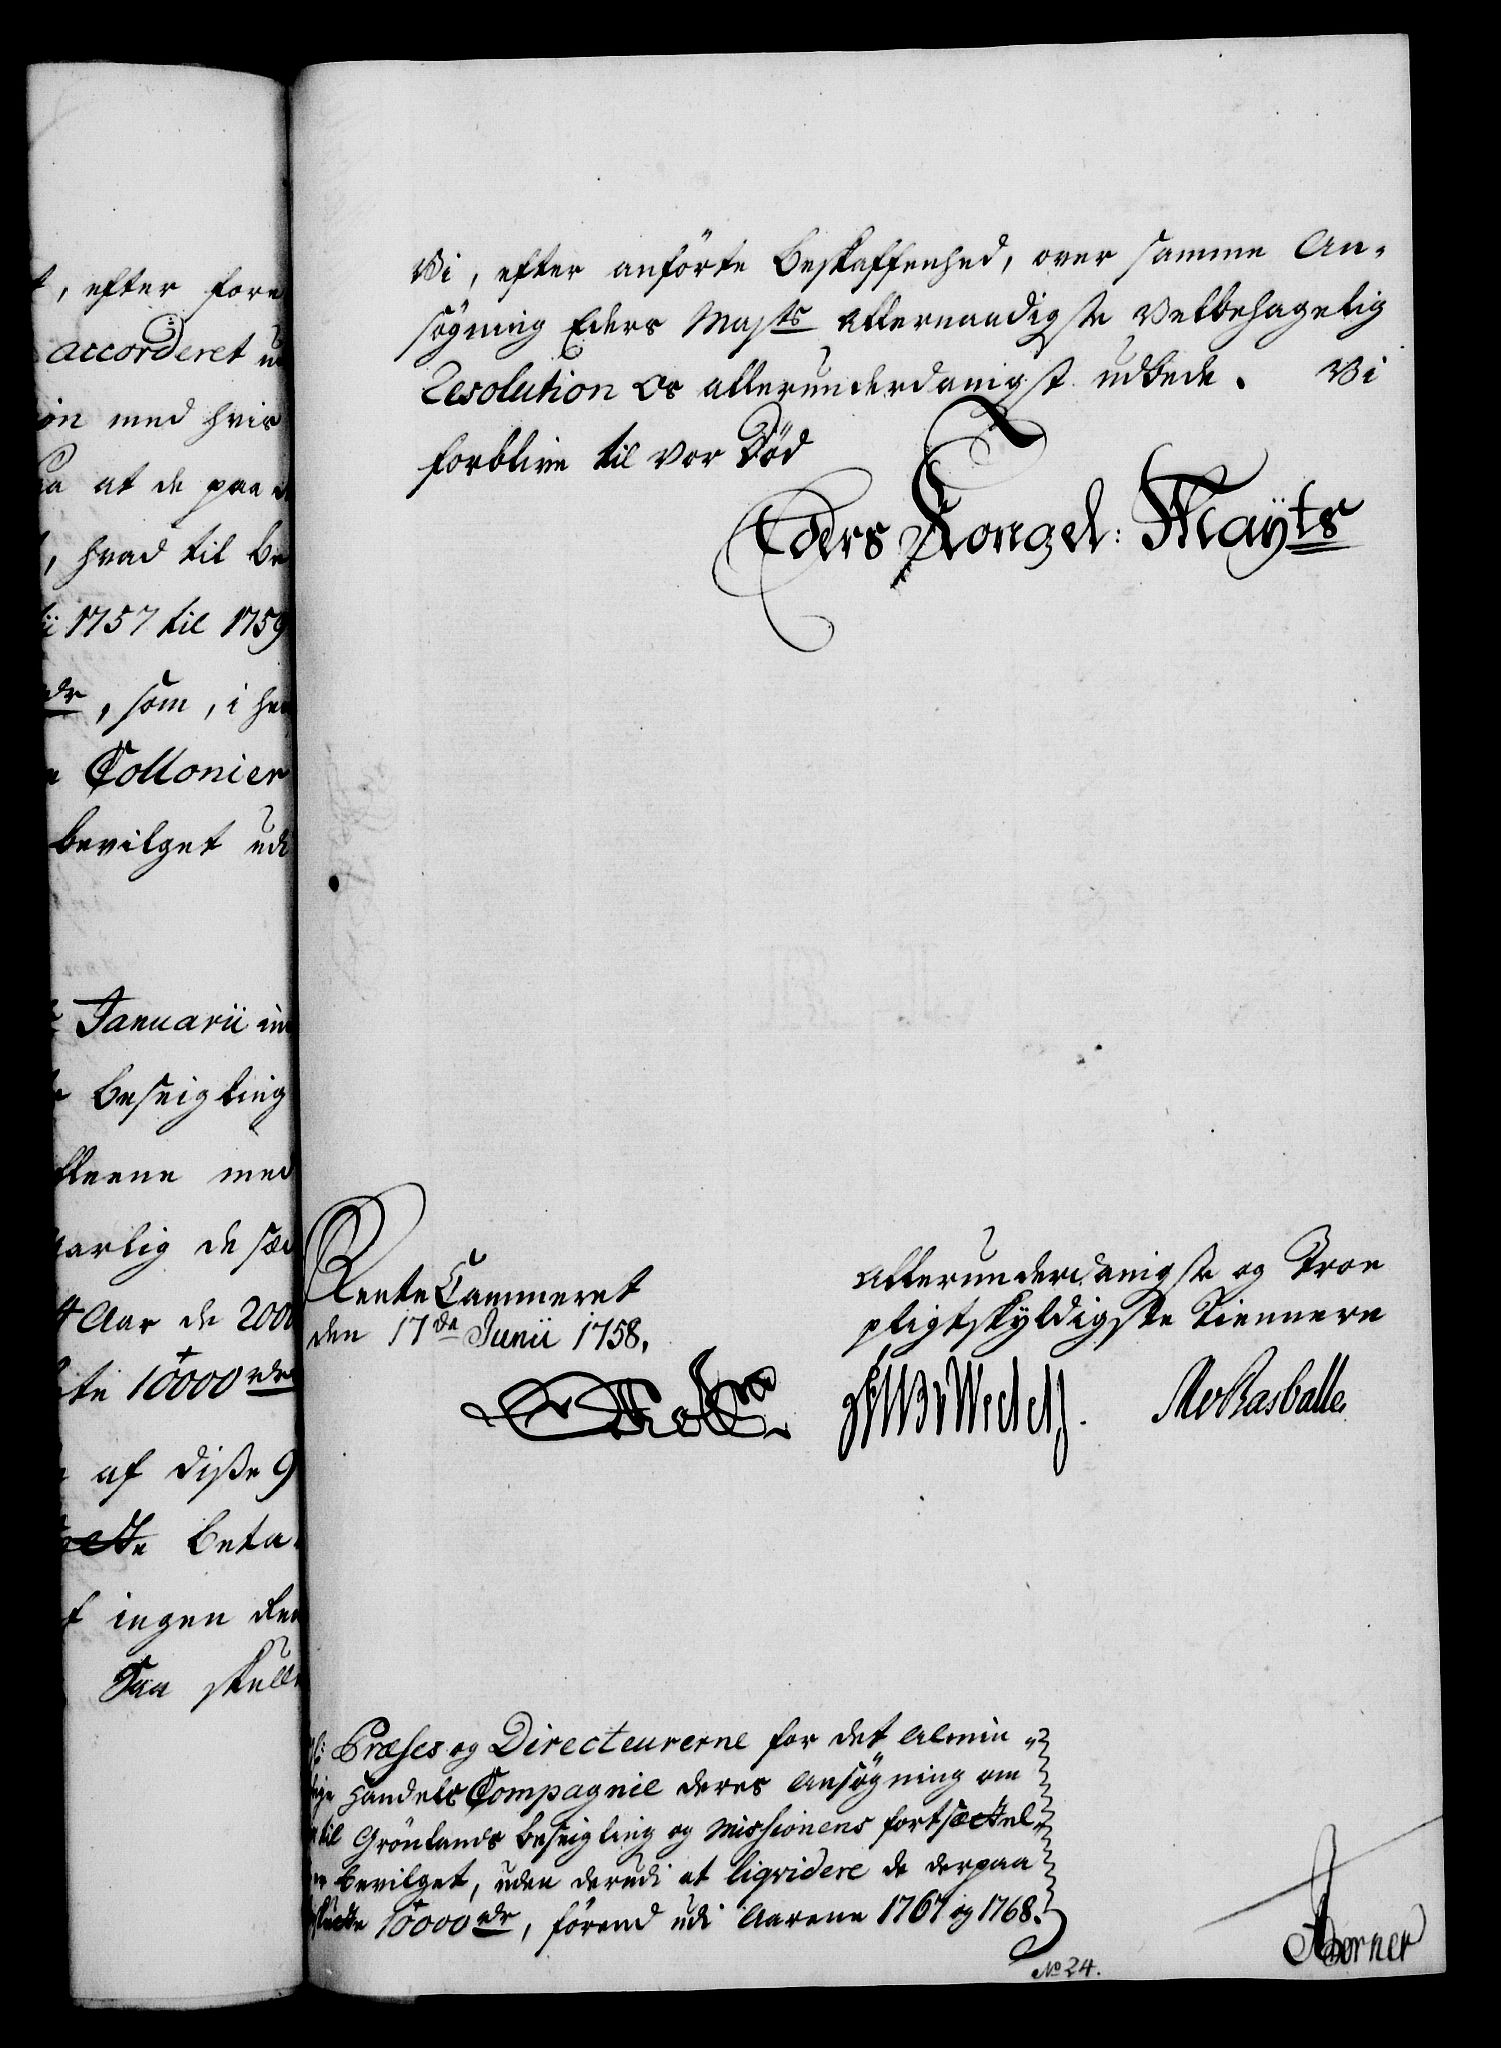 t, efter fore
accorderet u
on med hvis
at de paa
, hvad til be
ii 1757 til 1759
rdr, som, i hen
Collonier
bevilget udi
Januarii in
Beseigling
med
aarlig de
4 Aar de 2000
te 10000 rdr
af diße 9
Beta-
f ingen
Saa skulle
Vi, efter anförte Beskaffenhed, over samme An-
sögning Eders Majts allernaadigste Velbehagelig
Resolution os allerunderdanigst udbede. Vi
forblive til vor Död
Eders Kongel: Mayts
Rente Cammeret
den 17de Junii 1758.
allerunderdanigste og Troe
pligtskyldigste Tiennere
Wedel
Rasballe
Præses og Directeurerne for det Almin-
lige Handels Compagnie deres Ansögning om
til Grönlands Beseigling og Missionens fortsættel-
bevilget, uden derudi at liqvidere de derpaa
10000 rdr, förend udi Aarene 1767 og 1768.
No 24.
Børner